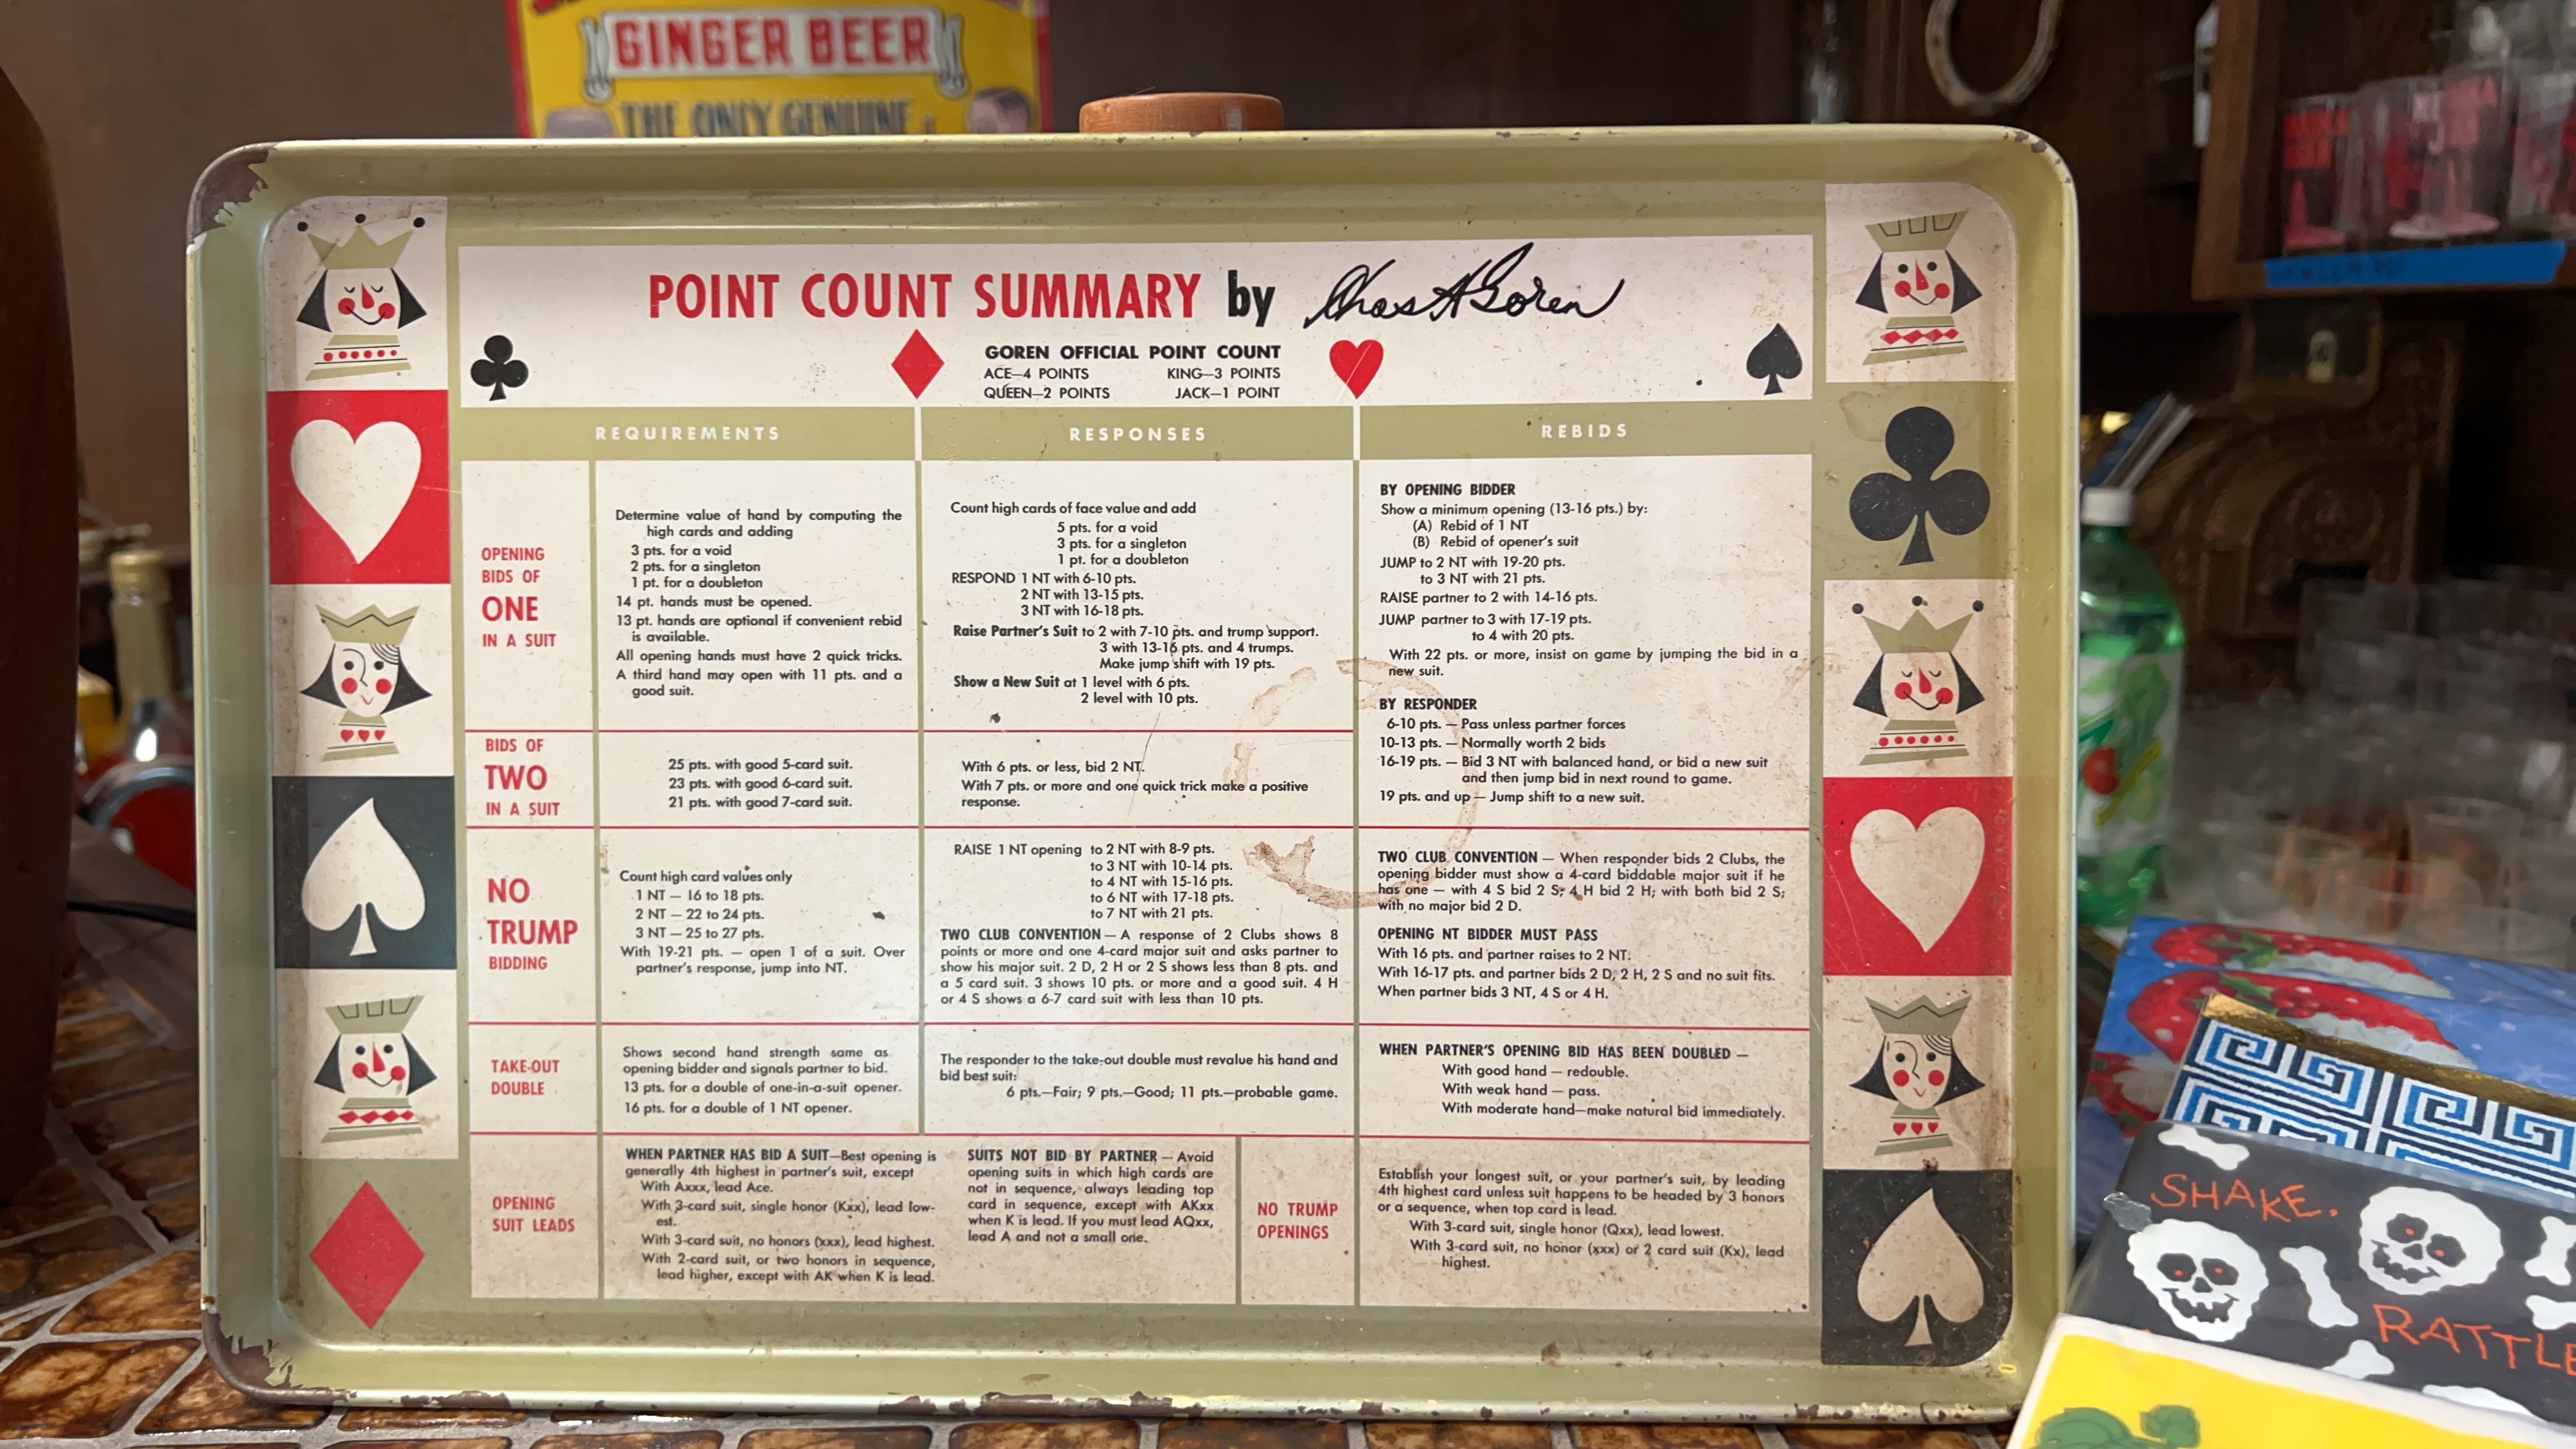 GINGER BEER
THE ONLY GENUINE
POINT COUNT SUMMARY by Chas A Goren
GOREN OFFICIAL POINT COUNT
ACE—4 POINTS KING—3 POINTS
QUEEN—2 POINTS JACK—1 POINT
REQUIREMENTS
RESPONSES
REBIDS
OPENING
BIDS OF
ONE
IN A SUIT
Determine value of hand by computing the
high cards and adding
3 pts. for a void
2 pts. for a singleton
1 pt. for a doubleton
14 pt. hands must be opened.
13 pt. hands are optional if convenient rebid
is available.
All opening hands must have 2 quick tricks.
A third hand may open with 11 pts. and a
good suit.
Count high cards of face value and add
5 pts. for a void
3 pts. for a singleton
1 pt. for a doubleton
RESPOND 1 NT with 6-10 pts.
2 NT with 13-15 pts.
3 NT with 16-18 pts.
Raise Partner's Suit to 2 with 7-10 pts. and trump support.
3 with 13-16 pts. and 4 trumps.
Make jump shift with 19 pts.
Show a New Suit at 1 level with 6 pts.
2 level with 10 pts.
BY OPENING BIDDER
Show a minimum opening (13-16 pts.) by:
(A) Rebid of 1 NT
(B) Rebid of opener's suit
JUMP to 2 NT with 19-20 pts.
to 3 NT with 21 pts.
RAISE partner to 2 with 14-16 pts.
JUMP partner to 3 with 17-19 pts.
to 4 with 20 pts.
With 22 pts. or more, insist on game by jumping the bid in a
new suit.
BY RESPONDER
6-10 pts. — Pass unless partner forces
10-13 pts. — Normally worth 2 bids
16-19 pts. — Bid 3 NT with balanced hand, or bid a new suit
and then jump bid in next round to game.
19 pts. and up — Jump shift to a new suit.
BIDS OF
TWO
IN A SUIT
25 pts. with good 5-card suit.
23 pts. with good 6-card suit.
21 pts. with good 7-card suit.
With 6 pts. or less, bid 2 NT.
With 7 pts. or more and one quick trick make a positive
response.
NO
TRUMP
BIDDING
Count high card values only
1 NT — 16 to 18 pts.
2 NT — 22 to 24 pts.
3 NT — 25 to 27 pts.
With 19-21 pts. — open 1 of a suit. Over
partner's response, jump into NT.
RAISE 1 NT opening to 2 NT with 8-9 pts.
to 3 NT with 10-14 pts.
to 4 NT with 15-16 pts.
to 6 NT with 17-18 pts.
to 7 NT with 21 pts.
TWO CLUB CONVENTION — A response of 2 Clubs shows 8
points or more and one 4-card major suit and asks partner to
show his major suit. 2 D, 2 H or 2 S shows less than 8 pts. and
a 5 card suit. 3 shows 10 pts. or more and a good suit. 4 H
or 4 S shows a 6-7 card suit with less than 10 pts.
TWO CLUB CONVENTION — When responder bids 2 Clubs, the
opening bidder must show a 4-card biddable major suit if he
has one — with 4 S bid 2 S; 4 H bid 2 H; with both bid 2 S;
with no major bid 2 D.
OPENING NT BIDDER MUST PASS
With 16 pts. and partner raises to 2 NT.
With 16-17 pts. and partner bids 2 D, 2 H, 2 S and no suit fits.
When partner bids 3 NT, 4 S or 4 H.
TAKE-OUT
DOUBLE
Shows second hand strength same as
opening bidder and signals partner to bid.
13 pts. for a double of one-in-a-suit opener.
16 pts. for a double of 1 NT opener.
The responder to the take-out double must revalue his hand and
bid best suit:
6 pts.—Fair; 9 pts.—Good; 11 pts.—probable game.
WHEN PARTNER'S OPENING BID HAS BEEN DOUBLED —
With good hand — redouble.
With weak hand — pass.
With moderate hand—make natural bid immediately.
OPENING
SUIT LEADS
WHEN PARTNER HAS BID A SUIT—Best opening is
generally 4th highest in partner's suit, except
With Axxx, lead Ace.
With 3-card suit, single honor (Kxx), lead low-
est.
With 3-card suit, no honors (xxx), lead highest.
With 2-card suit, or two honors in sequence,
lead higher, except with AK when K is lead.
SUITS NOT BID BY PARTNER — Avoid
opening suits in which high cards are
not in sequence, always leading top
card in sequence, except with AKxx
when K is lead. If you must lead AQxx,
lead A and not a small one.
NO TRUMP
OPENINGS
Establish your longest suit, or your partner's suit, by leading
4th highest card unless suit happens to be headed by 3 honors
or a sequence, when top card is lead.
With 3-card suit, single honor (Qxx), lead lowest.
With 3-card suit, no honor (xxx) or 2 card suit (Kx), lead
highest.
SHAKE.
RATTLE